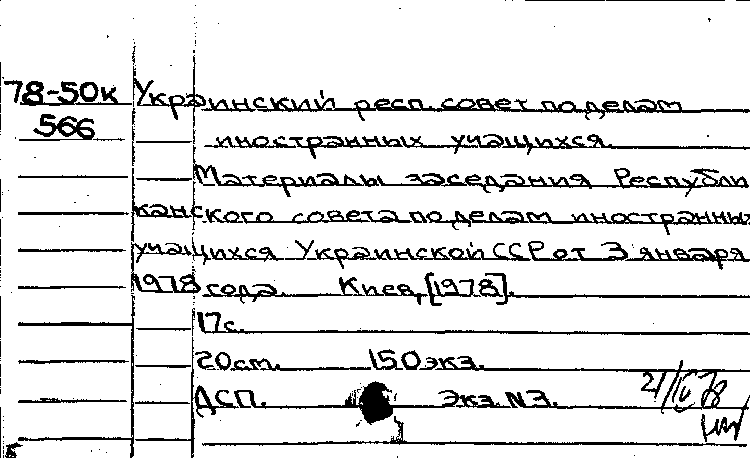 78-50к Украинский респ. совет по делам
566 иностранных учащихся.
Материалы заседания Республи
канского совета по делам иностранных
учащихся Украинской ССР от 3 января
1978 года. Киев, [1978].
17с.
20см. 150экз.
ДСП. Экз. N3.
21/IV 78